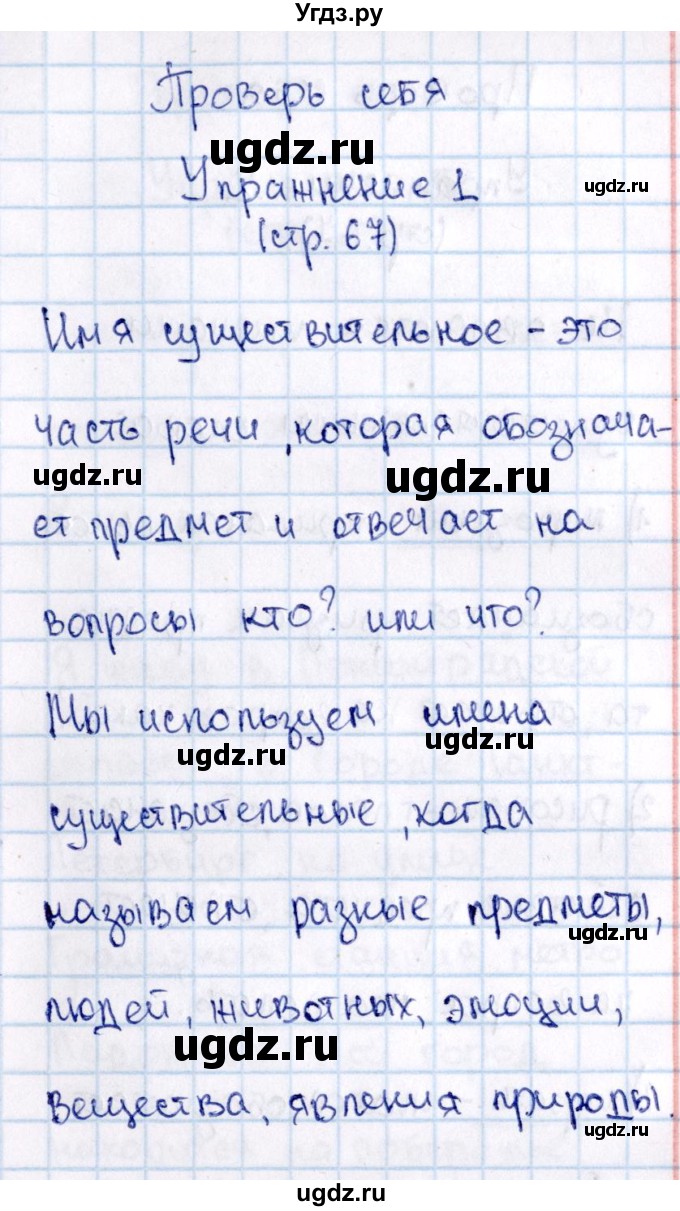 Угдз.ру
Проверь себя
ugdz.ru
Упражнение 1
ugdz.ru
(стр. 67)
Имя существительное – это
часть речи, которая обознача-
ugdz.ru
ugdz.ru
ет предмет и отвечает на
вопросы кто? или что?
Мы используем имена
ugdz.ru
ugdz.ru
существительные, когда
называем разные предметы,
ugdz.ru
людей, животных, эмоции,
ugdz.ru
вещества, явления природы.
ugdz.ru
ugdz.ru